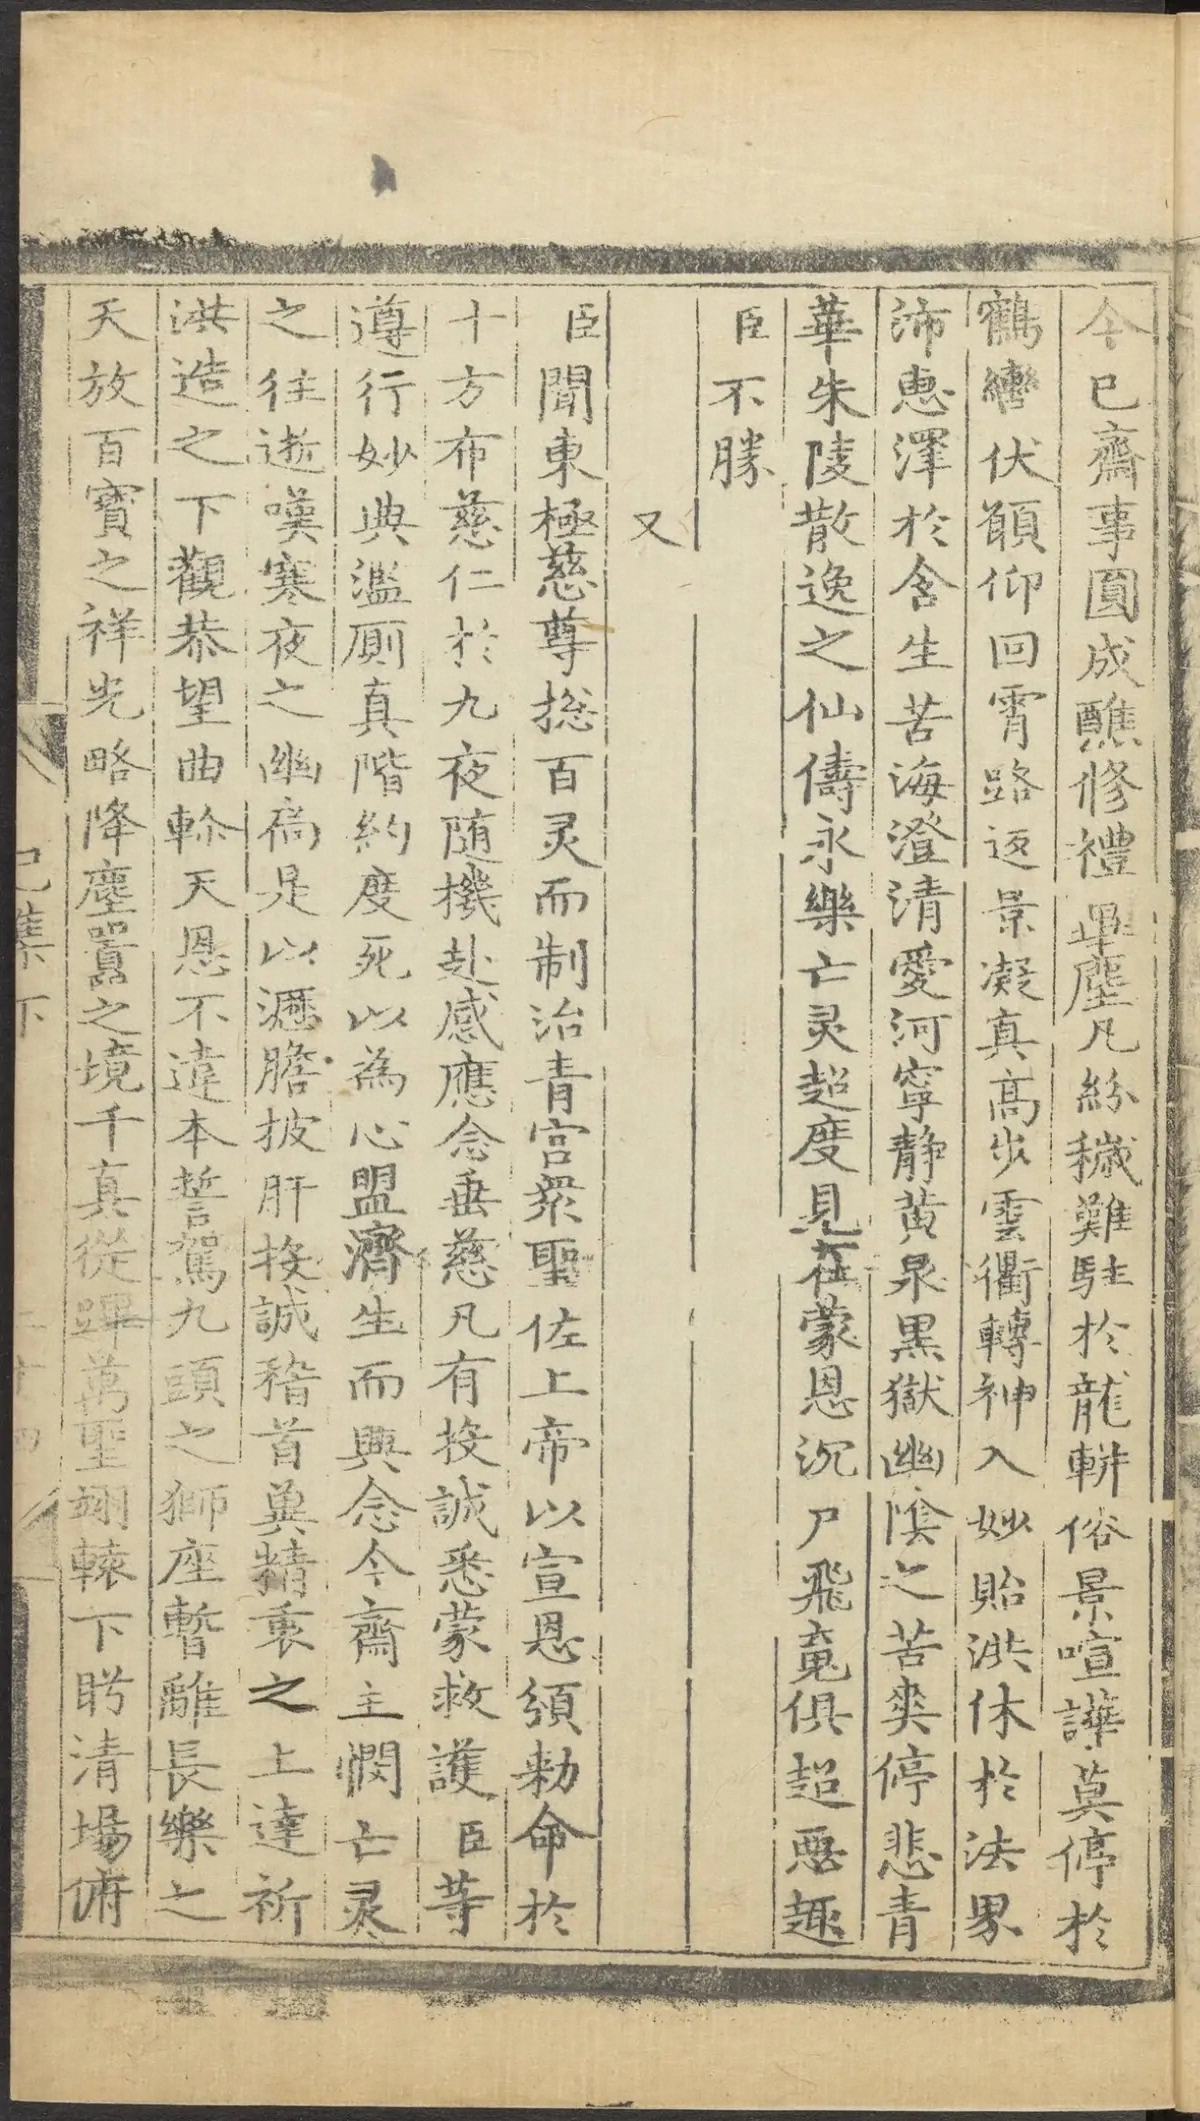 今已齋事圓成醮修禮畢塵凡紛穢難駐於龍軿俗景喧譁莫停於
鶴轡伏願仰回霄路返景凝真高步雲衢轉神入妙貽洪休於法界
沛惠澤於含生苦海澄清愛河寧靜黃泉黑獄幽陰之苦爽停悲青
華朱陵散逸之仙儔永樂亡灵超度見在蒙恩沉尸飛䰟俱超惡趣
臣不勝
又
臣聞東極慈尊㧾百灵而制治青宮衆聖佐上帝以宣恩頒勅命於
十方布慈仁於九夜随機赴感應念垂慈凡有投誠悉蒙救護臣等
遵行妙典濫厠真階約度死以為心盟濟生而興念今齋主憫亡灵
之往逝嘆寒夜之幽扃是以瀝膽披肝投誠稽首冀精衷之上達祈
洪造之下觀恭望曲軫天恩不違本誓駕九頭之獅座暫離長樂之
天放百寳之祥光略降塵嚣之境千真從蹕萬聖翊轅下盻清場俯
已集下
二十四